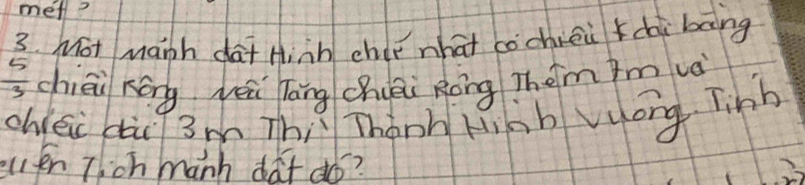 mét?
3. Một mảnh đất Hình chữ nhật có chiều dài bằng
5/3 chiều Rộng nếu Tăng chiều Rộng Thêm 7m và
chiều dài 3m Thì Thành Hình vuông. Tính
Tích mảnh đất đó?